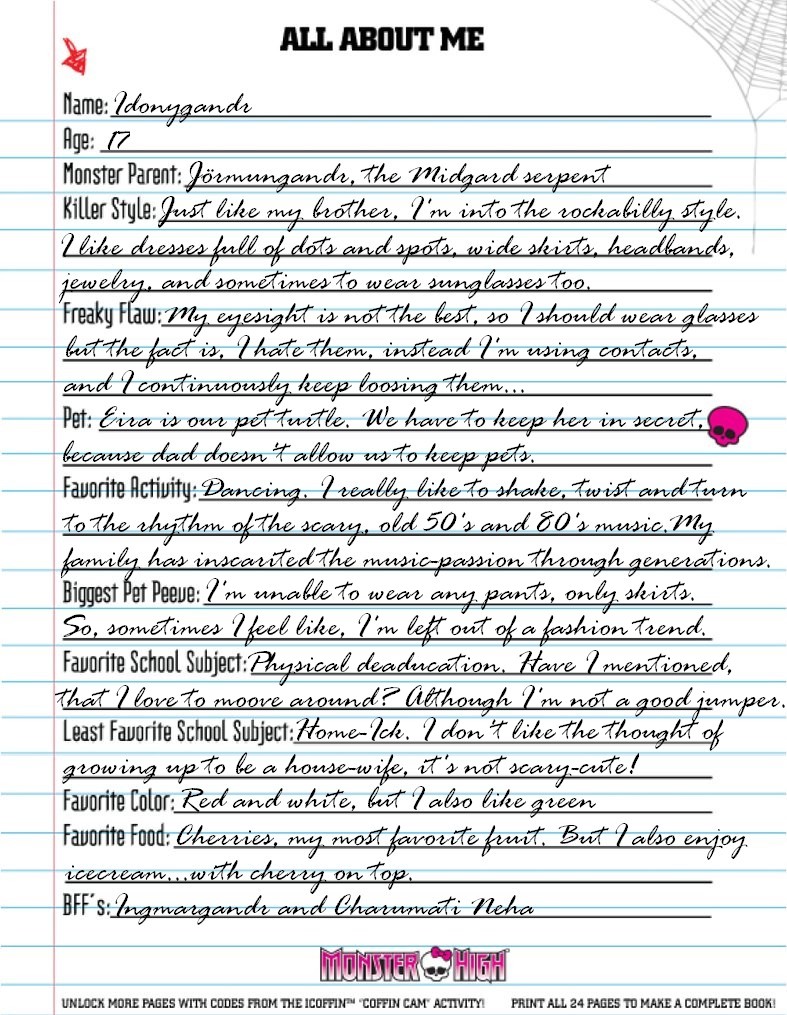 ALL ABOUT ME
Name: Idonygandr
Age: 17
Monster Parent: Jörmungandr, the Midgard serpent
Killer Style: Just like my brother, I'm into the rockabilly style.
I like dresses full of dots and spots, wide skirts, headbands,
jewelry, and sometimes to wear sunglasses too.
Freaky Flaw: My eyesight is not the best, so I should wear glasses
but the fact is, I hate them, instead I'm using contacts,
and I continuously keep loosing them...
Pet: Eira is our pet turtle. We have to keep her in secret,
because dad doesn't allow us to keep pets.
Favorite Activity: Dancing. I really like to shake, twist and turn
to the rhythm of the scary, old 50's and 80's music. My
family has inscarited the music-passion through generations.
Biggest Pet Peeve: I'm unable to wear any pants, only skirts.
So, sometimes I feel like, I'm left out of a fashion trend.
Favorite School Subject: Physical deaducation. Have I mentioned,
that I love to moove around? Although I'm not a good jumper.
Least Favorite School Subject: Home-Ick. I don't like the thought of
growing up to be a house-wife, it's not scary-cute!
Favorite Color: Red and white, but I also like green
Favorite Food: Cherries, my most favorite fruit. But I also enjoy
icecream...with cherry on top.
BFF's: Ingmargandr and Charumati Neha
MONSTER HIGH
UNLOCK MORE PAGES WITH CODES FROM THE ICOFFIN™ "COFFIN CAM" ACTIVITY! PRINT ALL 24 PAGES TO MAKE A COMPLETE BOOK!